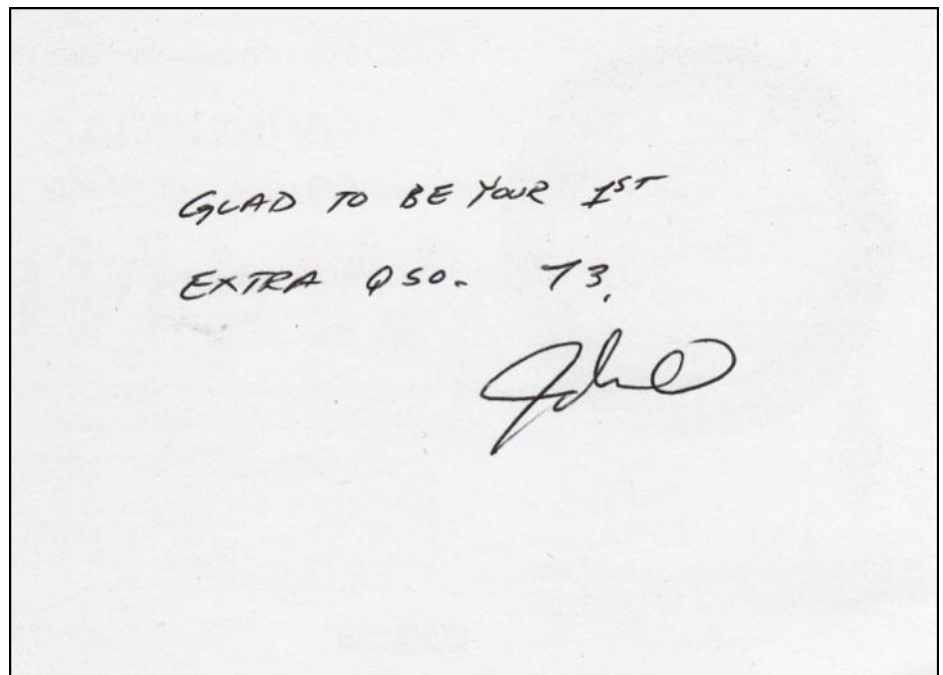 GLAD TO BE YOUR 1ST
EXTRA QSO. 73,